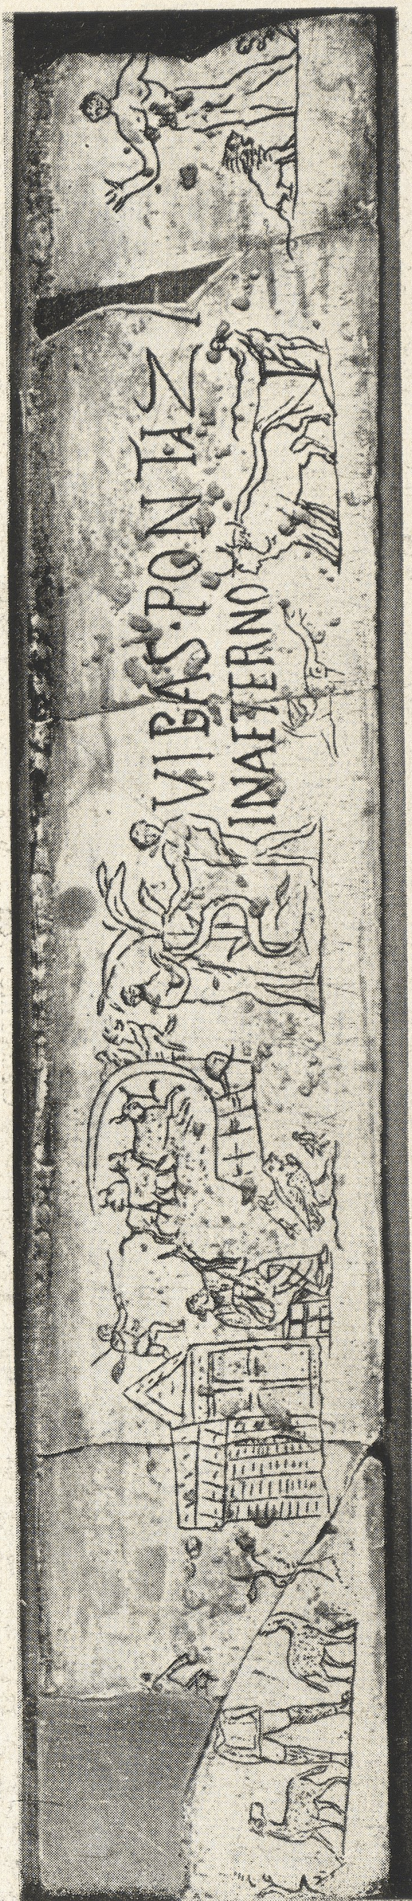 VIBAS·PONTIAZ
INAETERNO